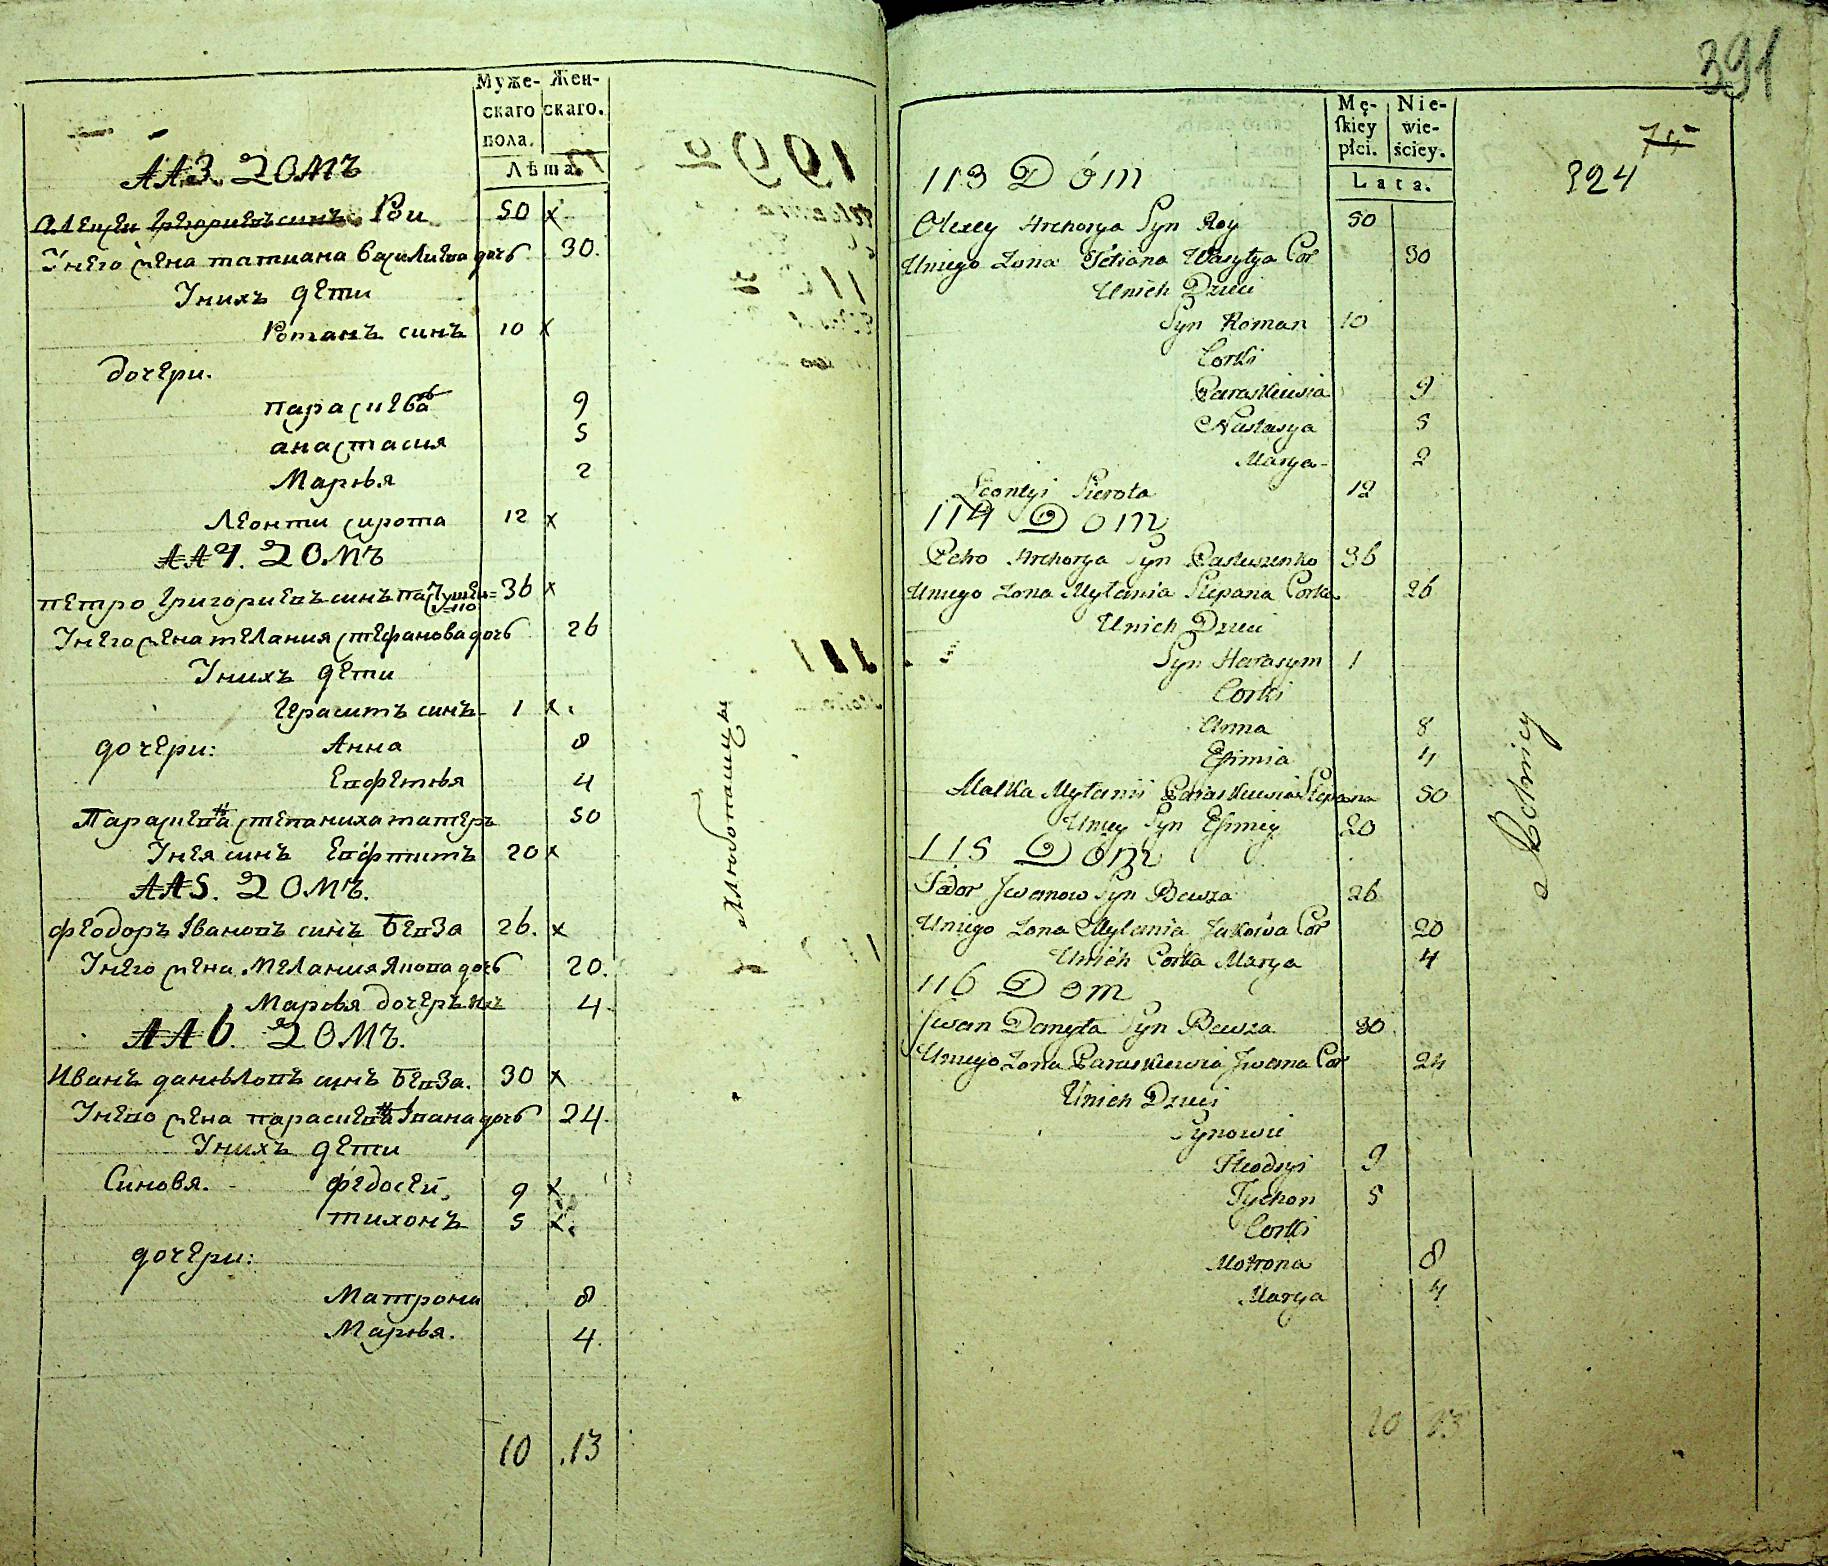 Муже-
скаго
пола.
Жен-
скаго.
Лѣта.
113. Домъ
Алеѯеи Григориевъ синъ Рои 50 x
У него жена татиана василиева дочь 30.
У нихъ дети
Романъ синъ 10 x
дочери.
параскева 9
анастасия 5
Марья 2
Леонти сирота 12 x
114. Домъ
петро Григориевъ синъ пастушен=
ко 36 x
У него жена мелания стефанова дочь 26
У нихъ дети
Герасимъ синъ 1 x.
дочери: Анна 8
Евфемья 4
Параскева степаниха матерь 50
У нея синъ Евфимъ 20 x
115. Домъ.
феодоръ Ивановъ синъ Бевза 26. x
У него жена Мелания Якова дочь 20.
Марья дочеръ их 4.
116. Домъ.
Иванъ даниловъ синъ Бевза. 30 x
У нево жена параскева Ивана дочь 24.
У нихъ дети
Синовя. федосей 9 x
тихонъ 5 x.
дочери:
Матрона 8
Марья. 4.
10 .13
Хлюбопашцы
391
Mę-
skiey
płci.
Nie-
wie-
ściey.
Lata.
75
324
113 Dóm
Olexey Hrehorya Syn Roy 50
Uniego Zona Tetiana Wasylya Cor 30
Unich Dzieci
Syn Roman 10
Corki
Paraskiewia 9
Nastasya 5
Marya 2
Leontyi Sierota 12
114 Dom
Petro Hrehorya Syn Pastuszenko 36
Uniego Zona Mylania Stepana Corka 26
Unich Dzieci
Syn Harasym 1
Corki
Anna 8
Efimia 4
Matka Mylanii Paraskiewia Stepana 50
Uniey Syn Efimey 20
115 Dom
Fedor Jwanow Syn Bewza 26
Uniego Zona Mylania Jakowa Cor 20
Unich Corka Marya 4
116 Dom
Jwan Danyla Syn Bewza 30
Uniego Zona Paraskiewia Jwana Cor 24
Unich Dzieci
Synowie
Fteodsyi 9
Tychon 5
Corki
Motrona 8
Marya 4
10 13
Rolnicy